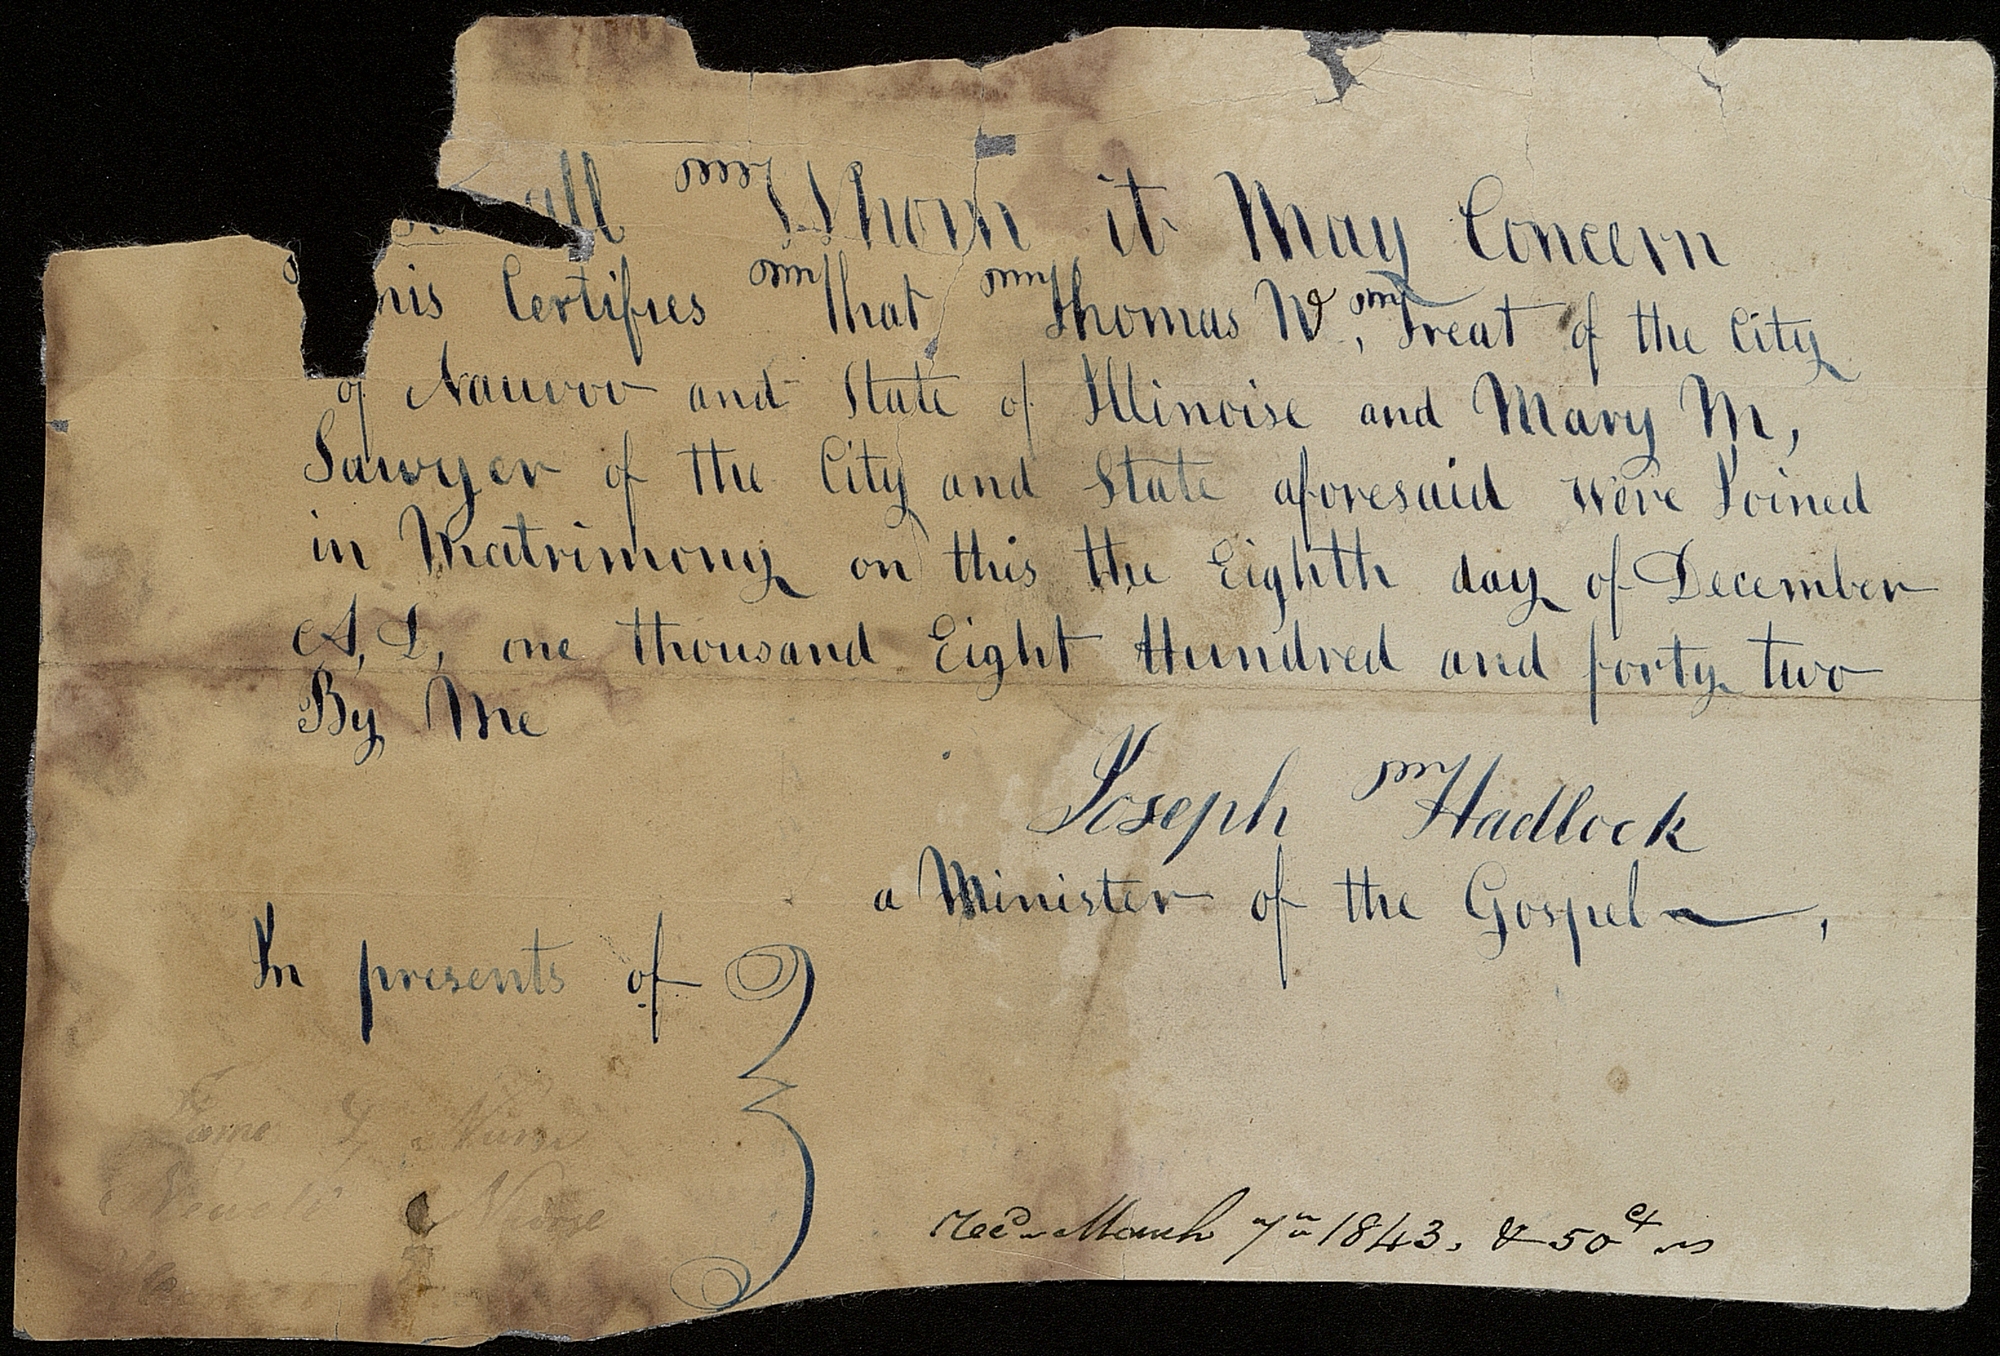 all Whom it May Concern
his Certifies That Thomas W, Treat of the City
of Nauvoo and State of Illinoise and Mary M,
Sawyer of the City and State aforesaid were Joined
in Matrimony on this the Eighth day of December
A, D, one thousand Eight Hundred and forty two
By Me
Joseph Hadlock
a Minister of the Gospel,
In presents of
Nurse
Recd March 7th 1843. & 50 ct